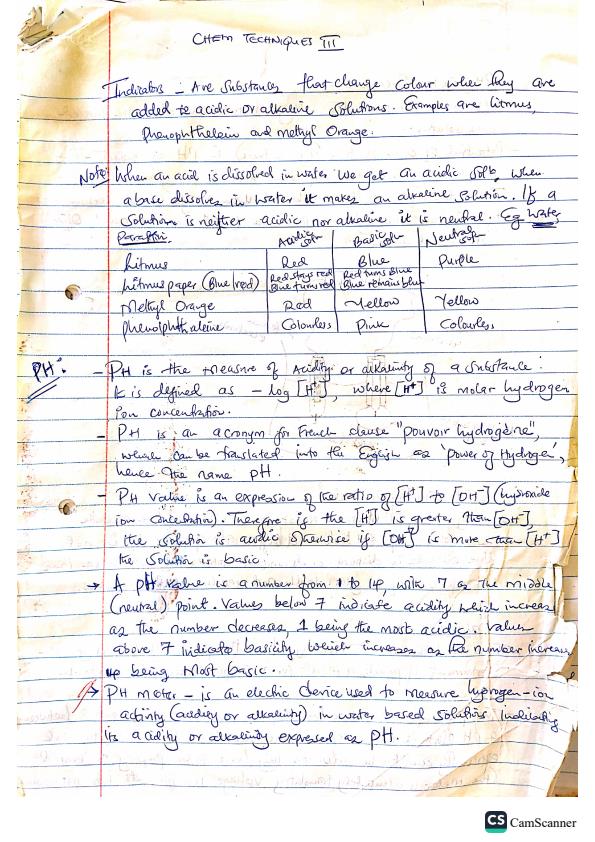 CHEM TECHNIQUES III
Indicators - Are substances that change colour when they are
added to acidic or alkaline solutions. Examples are litmus,
phenophthelein and methyl Orange.
Note: When an acid is dissolved in water we get an acidic soltn. when
a base dissolves in water it makes an alkaline solution. If a
solution is neither acidic nor alkaline it is neutral. Eg water
Paraffin. Acidic soln Basic soln Neutral soln
Litmus Red Blue Purple
Litmus paper (Blue/red) Red stays red Red turns Blue
Blue turns red Blue remains blue
Methyl Orange Red Yellow Yellow
phenolphthaleine Colourless Pink Colourless
PH: - PH is the measure of Acidity or alkalinity of a substance.
It is defined as - Log [H⁺], where [H⁺] is molar hydrogen
ion concentration.
- PH is an acronym for French clause "pouvoir hydrogène",
which can be translated into the English as 'power of Hydrogen',
hence the name pH.
- PH value is an expression of the ratio of [H⁺] to [OH⁻] (hydroxide
ion concentration). Therefore if the [H⁺] is greater than [OH⁻],
the solution is acidic otherwise if [OH⁻] is more than [H⁺]
the solution is basic.
→ A pH value is a number from 1 to 14, with 7 as the middle
(neutral) point. Values below 7 indicate acidity which increases
as the number decreases, 1 being the most acidic. Values
above 7 indicate basicity which increases as the number increases
14 being most basic.
→ PH meter - is an electric device used to measure hydrogen-ion
activity (acidity or alkalinity) in water based solutions indicating
its acidity or alkalinity expressed as PH.
CS CamScanner